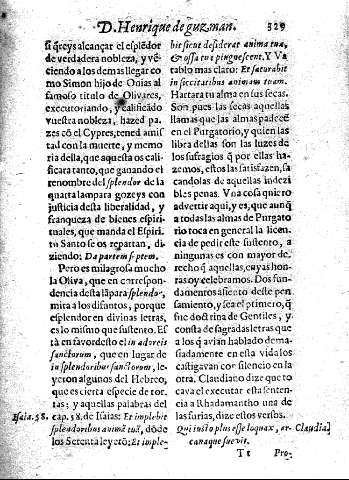 D. Henrique de guzman. 329
si q̃reys alcançar el esplẽdor
de verdadera nobleza, y vẽ-
ciendo a los demas llegar co
mo Simon hijo de Onias al
famoso titulo de Olivares,
executoriando, y calificado
vuestra nobleza, hazed pa-
zes cõ el Cypres, tened amis
tad con la muerte, y memo
ria della, que aquesta os cali
ficara tanto, que ganando el
renombre del splendor de la
quarta lampara gozeys con
justicia desta liberalidad, y
franqueza de bienes espiri-
tuales, que manda el Espiri
tu Santo se os repartan, di-
ziendo; Da partem septem.
Pero es milagrosa mucho
la Oliva, que en correspon-
dencia desta lãpara splendor,
mira a los difuntos, porque
esplendor en divinas letras,
es lo mismo que sustento. Es
tà en favor desto el in adoreis
sanctorum, que en lugar de
in splendoribus sanctorum, le-
yeron algunos del Hebreo,
que es cierta especie de tor-
tas; y aquellas palabras del
Isaia. 58. cap. 58. de Isaias: Et implebit
splendoribus animã tuã, dõde
los Setenta leyerõ; Et imple-
bit sicut desiderat anima tua,
& ossa tua pinguescent. Y Va
tablo mas claro: Et saturabit
in siccitatibus animam tuam.
Hartara tu alma en sus secas.
Son pues las secas aquellas
llamas que las almas padecẽ
en el Purgatorio, y quien las
libra dellas son las luzes de
los sufragios q̃ por ellas ha-
zemos, estos las satisfazen, sa
candolas de aquellas indezi
bles penas. Vna cosa quiero
advertir aqui, y es, que aunq̃
a todas las almas de Purgato
rio toca en general la licen-
cia de pedir este sustento, a
ningunas es con mayor de-
recho q̃ aquellas, cuyas hon-
ras oy celebramos. Dos fun-
damentos assiento deste pen
samiento, y sea el primero, q̃
fue doctrina de Gentiles, y
consta de sagradas letras que
a los q̃ avian hablado dema-
siadamente en esta vida los
castigavan con silencio en la
otra. Claudiano dize que to
cava el executar esta senten-
cia a Rhadamantho una de
las furias, dize estos versos.
Qui iusto plus esse loquax, ar- Claudia.
canaque suevit.
Tt Pro-